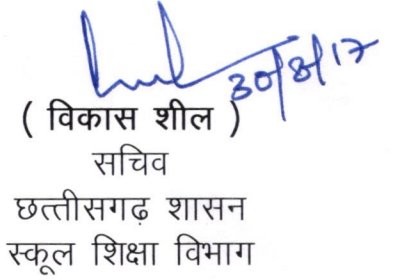 30/8/17
( विकास शील )
सचिव
छत्तीसगढ़ शासन
स्कूल शिक्षा विभाग